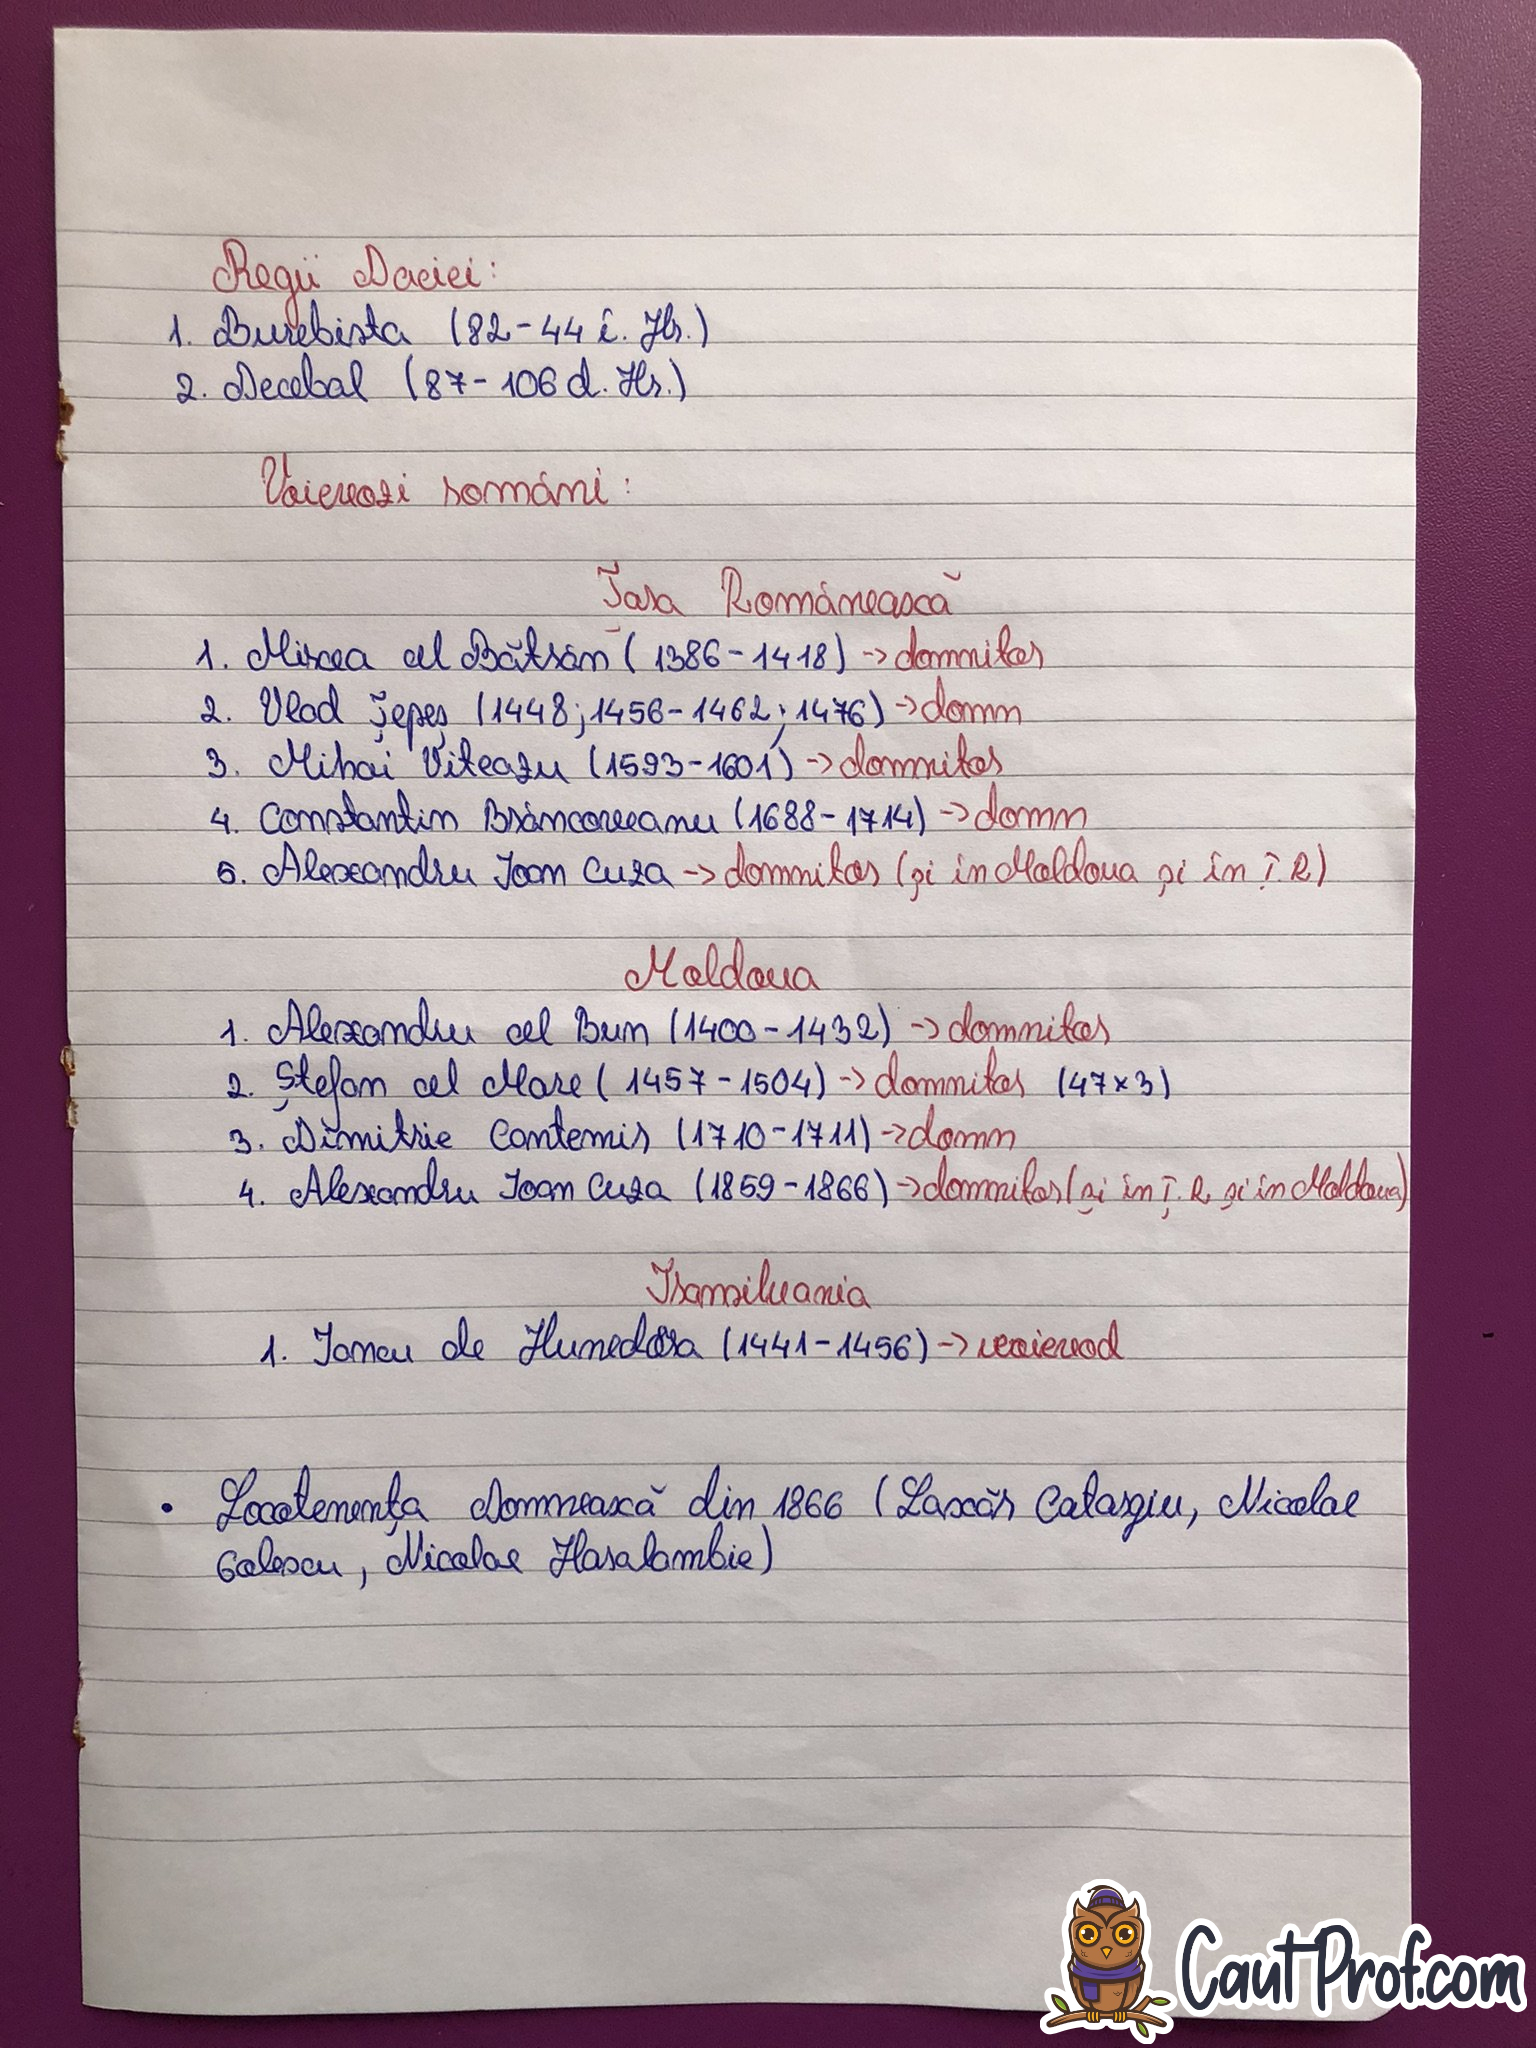 Regii Daciei:
1. Burebista (82-44 î. Hr.)
2. Decebal (87-106 d. Hr.)
Voievozi români:
Țara Românească
1. Mircea cel Bătrân (1386-1418) -> domnitor
2. Vlad Țepeș (1448; 1456-1462; 1476) -> domn
3. Mihai Viteazu (1593-1601) -> domnitor
4. Constantin Brâncoveanu (1688-1714) -> domn
5. Alexandru Ioan Cuza -> domnitor (și în Moldova și în Ț.R)
Moldova
1. Alexandru cel Bun (1400-1432) -> domnitor
2. Ștefan cel Mare (1457-1504) -> domnitor (47x3)
3. Dimitrie Cantemir (1710-1711) -> domn
4. Alexandru Ioan Cuza (1859-1866) -> domnitor (și în Ț.R și în Moldova)
Transilvania
1. Iancu de Hunedoara (1441-1456) -> voievod
• Locotenența Domnească din 1866 (Lascăr Catargiu, Nicolae
Golescu, Nicolae Haralambie)
CautProf.com